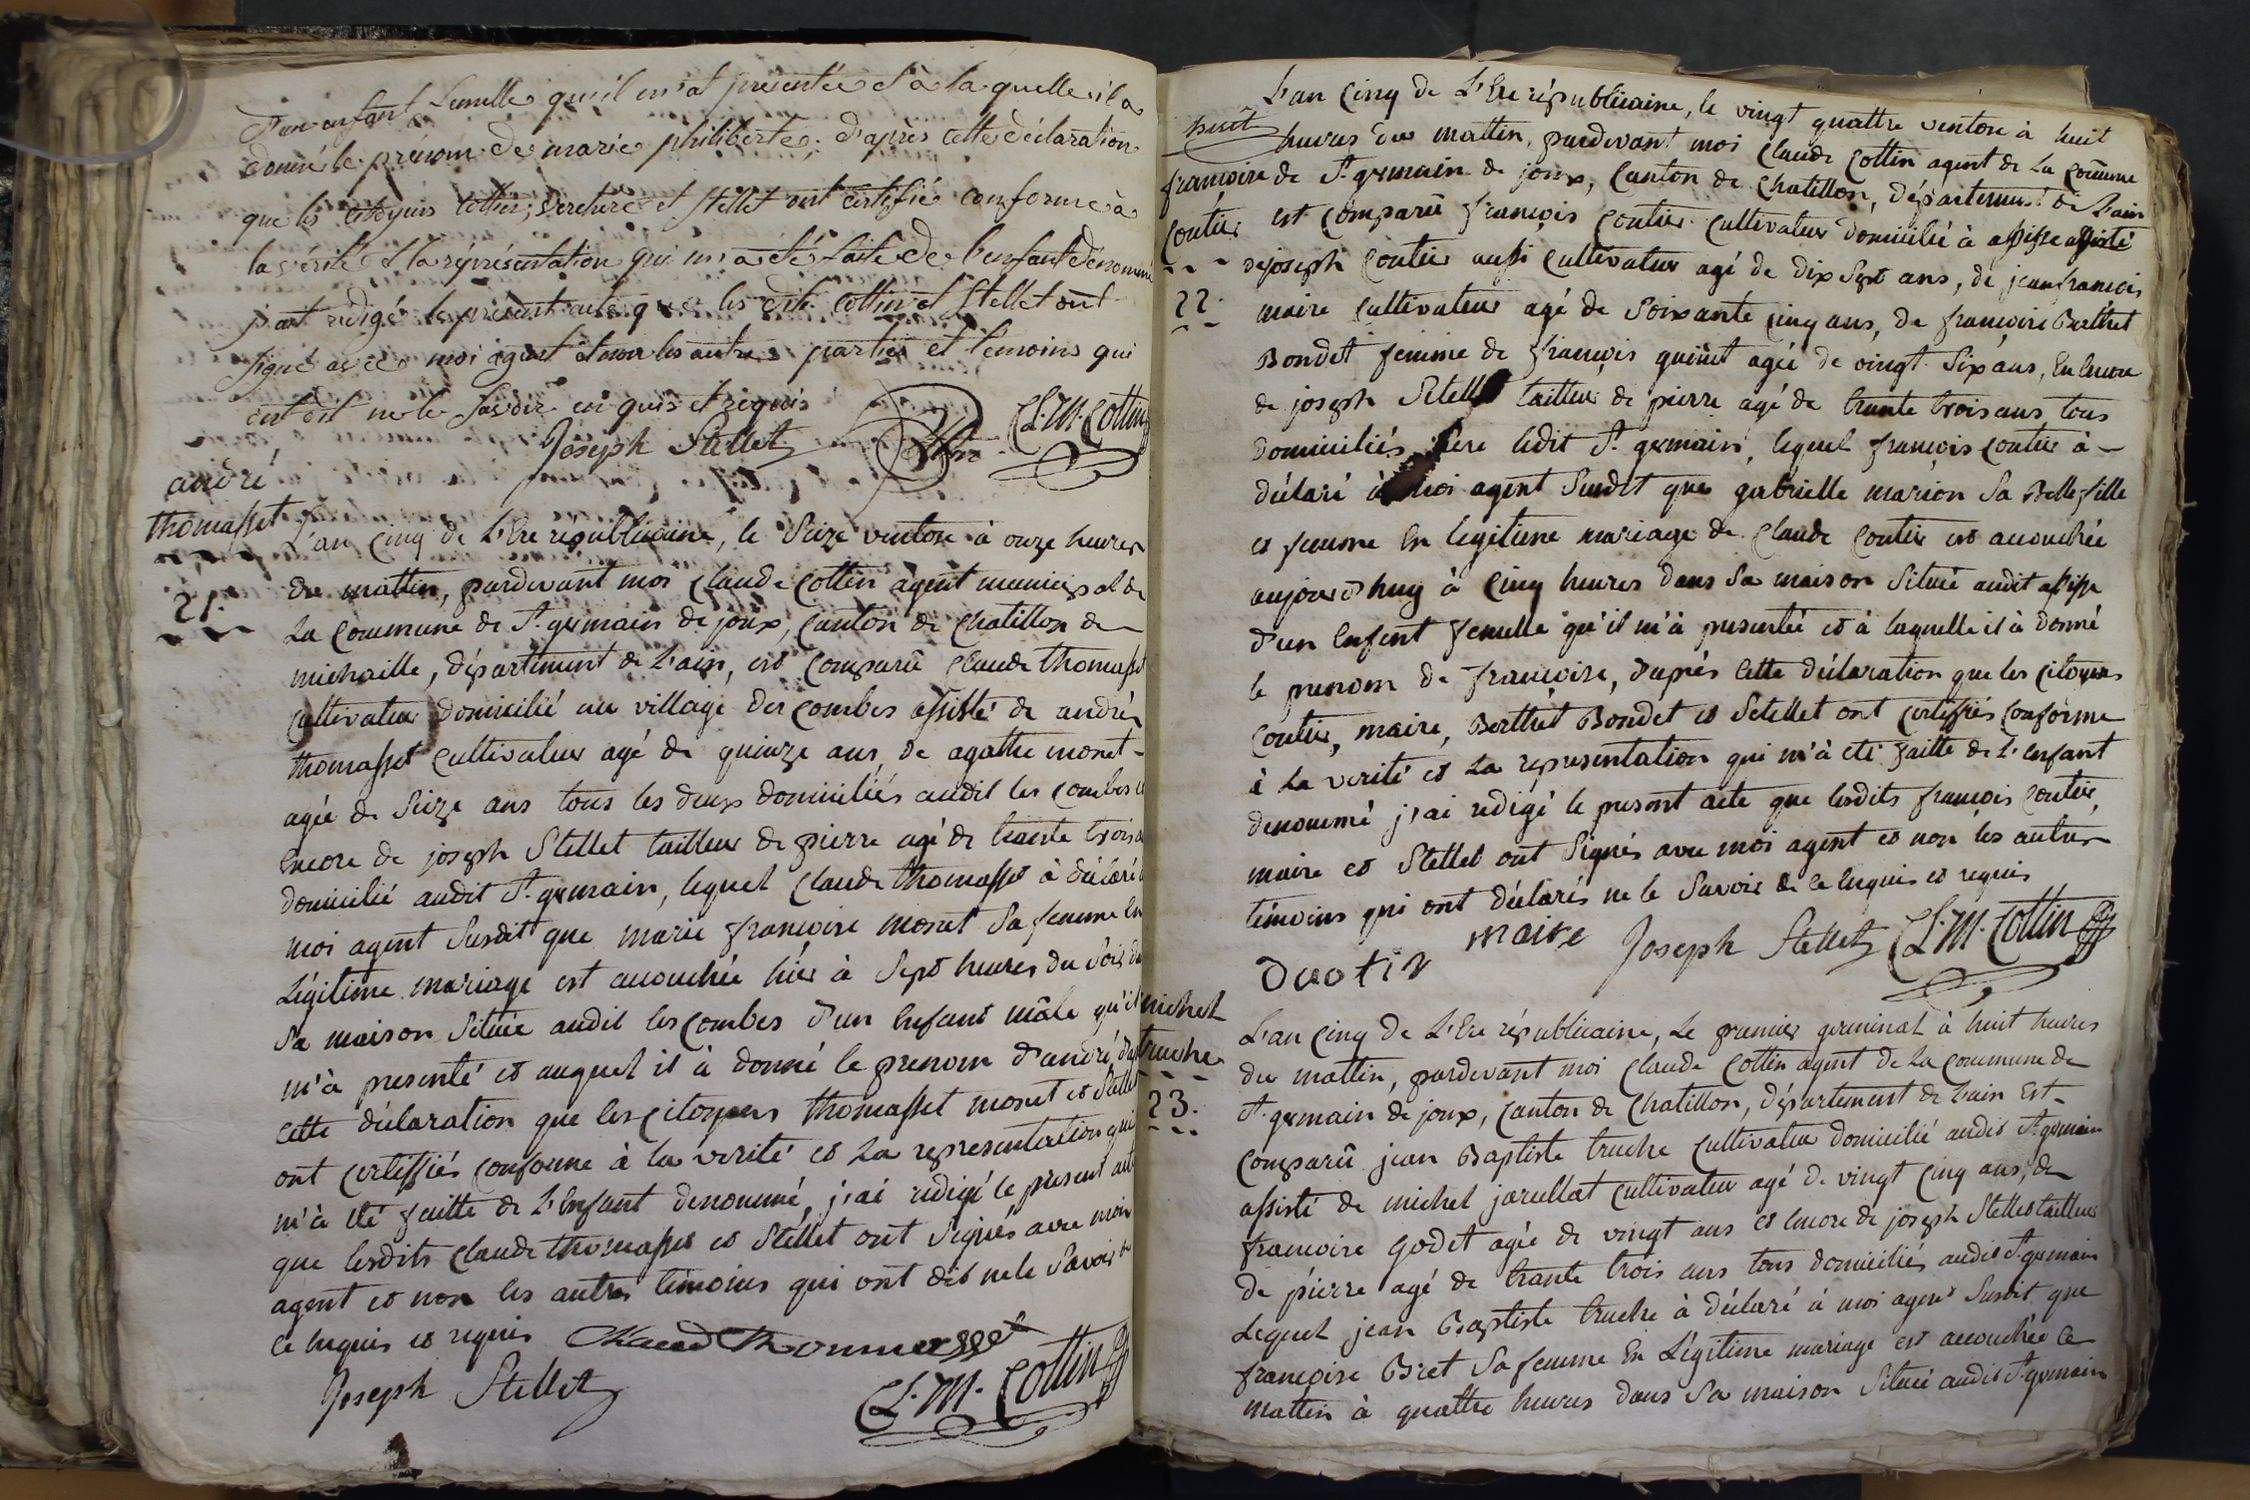 D'un enfant femelle qu'il m'a présentée et à la quelle il a
donné le prénom de marie philiberte; d'après cette déclaration
que les citoyens cottin, et Stellet ont certifié conforme à
la vérité et la répréséntation qui m'a été faite de l'enfant dénommé
j'ait redigé le présent acte que les dits cottin et Stellet ont
signé avec moi agent et non les autres parties et témoins qui
ont dit ne le Savoir en quis et requis
Joseph Stellet Cl. M. Cottin
andré
thomasset
21.
L'an Cinq de L'Ere républicaine, le Seize ventose à onze heures
du mattin, pardevant moi Claude Cottin agent municipal de
La Commune de St. germain de joux, Canton de Chatillon de
michaille, département de L'ain, est Comparû Claude thomasset
Cultivateur domicilié au village des Combes assisté de andré
thomasset Cultivateur agé de quinze ans, de agathe monet
agée de Seize ans tous les deux domiciliés audit les Combes et
Encore de joseph Stellet tailleur de pierre agé de trante trois ans
domicilié audit St. germain, lequel Claude thomasset à déclaré à
moi agent Susdit que marie françoise monet Sa femme En
Légitime mariage est accouchée hier à Sept heures du Soir dans
Sa maison Située audit les Combes d'un Enfant mâle qu'il
m'à presenté et auquel il à donné le prenom d'andré, d'après
Cette déclaration que les Citoyens thomasset monet et Stellet
ont Certiffiés Conforme à la verité et La representation qui
m'à eté faitte de L'Enfant denommé, j'ai redigé le present acte
que lesdits Claude thomasset et Stellet ont Signés avec moi
agent et non les autres témoins qui ont dit ne le Savoir de
Ce Enquis et requis Claud Thomasset
Joseph Stellet Cl. M. Cottin
françoise
Coutier
22.
L'an Cinq de L'Ere républicaine, le vingt quattre ventose à huit
heures du mattin, pardevant moi Claude Cottin agent de La Comune
de St. germain de joux, Canton de Chatillon, département de L'ain
est Comparû françois Coutier Cultivateur domicilié à assisse assisté
de joseph Coutier aussi Cultivateur agé de dix Sept ans, de jean françois
maire Cultivateur agé de Soixante Cinq ans, de françoise Berthet
Bondet femme de françois quinet agée de vingt Six ans, En Encore
de joseph Stellet tailleur de pierre agé de trante trois ans tous
domiciliés Sur ledit St. germain, lequel françois Coutier à
déclaré à moi agent Susdit que gabrielle marion Sa Belle fille
et femme En legitime mariage de Claude Coutier est accouchée
aujourd'huy à Cinq heures dans Sa maison Située audit assisse
d'un Enfent femelle qu'il m'à presentée et à laquelle il à donné
le prenom de françoise, d'après Cette déclaration que les Citoyens
Coutier, maire, Berthet Bondet et Stellet ont Certiffiés Conforme
à La verité et La representation qui m'à eté faitte de L'Enfant
denommé j'ai redigé le present acte que lesdits françois Coutier,
maire et Stellet ont Signés avec moi agent et non les autres
témoins qui ont déclarés ne le Savoir de Ce Enquis et requis
maire Joseph Stellet Cl. M. Cottin
michel
truche
23.
L'an Cinq de L'Ere républicaine, Le premier germinal à huit heures
du mattin, pardevant moi Claude Cottin agent de La Commune de
St. germain de joux, Canton de Chatillon, département de L'ain Est
Comparû jean Baptiste truche Cultivateur domicilié audit St. germain
assisté de michel jarullat Cultivateur agé de vingt Cinq ans, de
françoise godet agée de vingt ans et Encore de joseph Stellet tailleur
de pierre agé de trante trois ans tous domiciliés audit St. germain
Lequel jean Baptiste truche à déclaré à moi agent Susdit que
françoise Bret Sa femme En Légitime mariage est accouchée Ce
mattin à quattre heures dans Sa maison Située audit St. germain